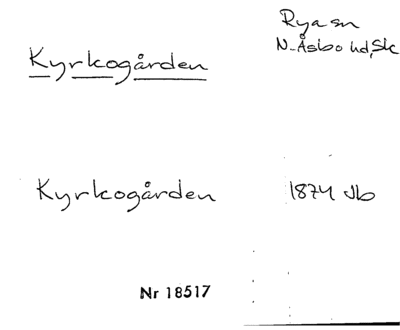 Kyrkogården
Rya sn
N-Åsbo hd, Sk
Kyrkogården 1874 Jb
Nr 18517